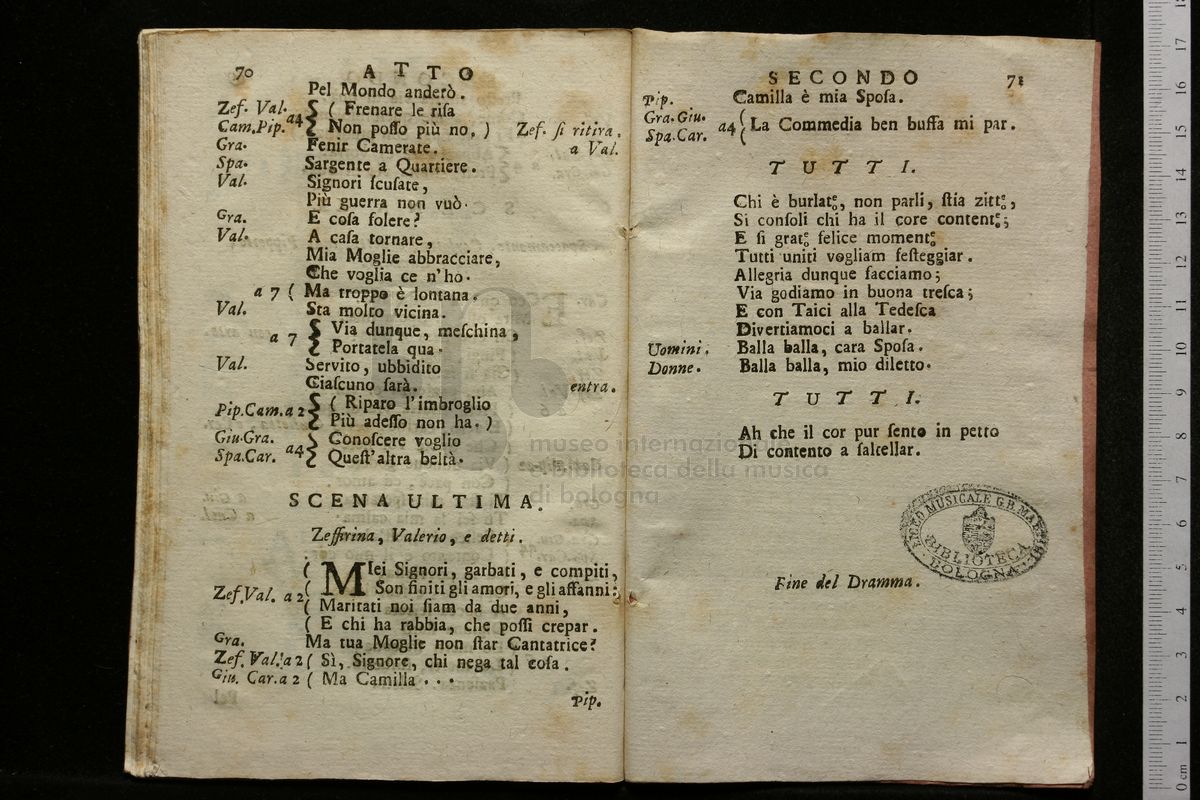 70 ATTO
Pel Mondo anderò.
Zef. Val. Cam. Pip. a4 { ( Frenare le risa
Non posso più no. ) Zef. si ritira.
Gra. Fenir Camerate. a Val.
Spa. Sargente a Quartiere.
Val. Signori scusate,
Più guerra non vuò.
Gra. E cosa folere?
Val. A casa tornare,
Mia Moglie abbracciare,
Che voglia ce n'ho.
a 7 ( Ma troppo è lontana.
Val. Sta molto vicina.
a 7 { Via dunque, meschina,
Portatela qua.
Val. Servito, ubbidito
Ciascuno sarà. entra.
Pip. Cam. a 2 { ( Riparo l'imbroglio
Più adesso non ha. )
Giu. Gra. Spa. Car. a4 { Conoscere voglio
Quest'altra beltà.
SCENA ULTIMA.
Zeffirina, Valerio, e detti.
Zef. Val. a 2 ( MIei Signori, garbati, e compiti,
( Son finiti gli amori, e gli affanni:
( Maritati noi siam da due anni,
( E chi ha rabbia, che possi crepar.
Gra. Ma tua Moglie non star Cantatrice?
Zef. Val. a 2 ( Sì, Signore, chi nega tal cosa.
Giu. Car. a 2 ( Ma Camilla . . .
Pip.
SECONDO 71
Pip. Camilla è mia Sposa.
Gra. Giu. Spa. Car. a4 ( La Commedia ben buffa mi par.
TUTTI.
Chi è burlat e/o, non parli, stia zitt e/o,
Si consoli chi ha il core content e/o;
E si grat e/o felice moment e/o
Tutti uniti vogliam festeggiar.
Allegria dunque facciamo;
Via godiamo in buona tresca;
E con Taici alla Tedesca
Divertiamoci a ballar.
Uomini. Balla balla, cara Sposa.
Donne. Balla balla, mio diletto.
TUTTI.
Ah che il cor pur sento in petto
Di contento a saltellar.
Fine del Dramma.
LICEO MUSICALE G.B. MARTINI
BIBLIOTECA
BOLOGNA
museo internazionale
e biblioteca della musica
di bologna